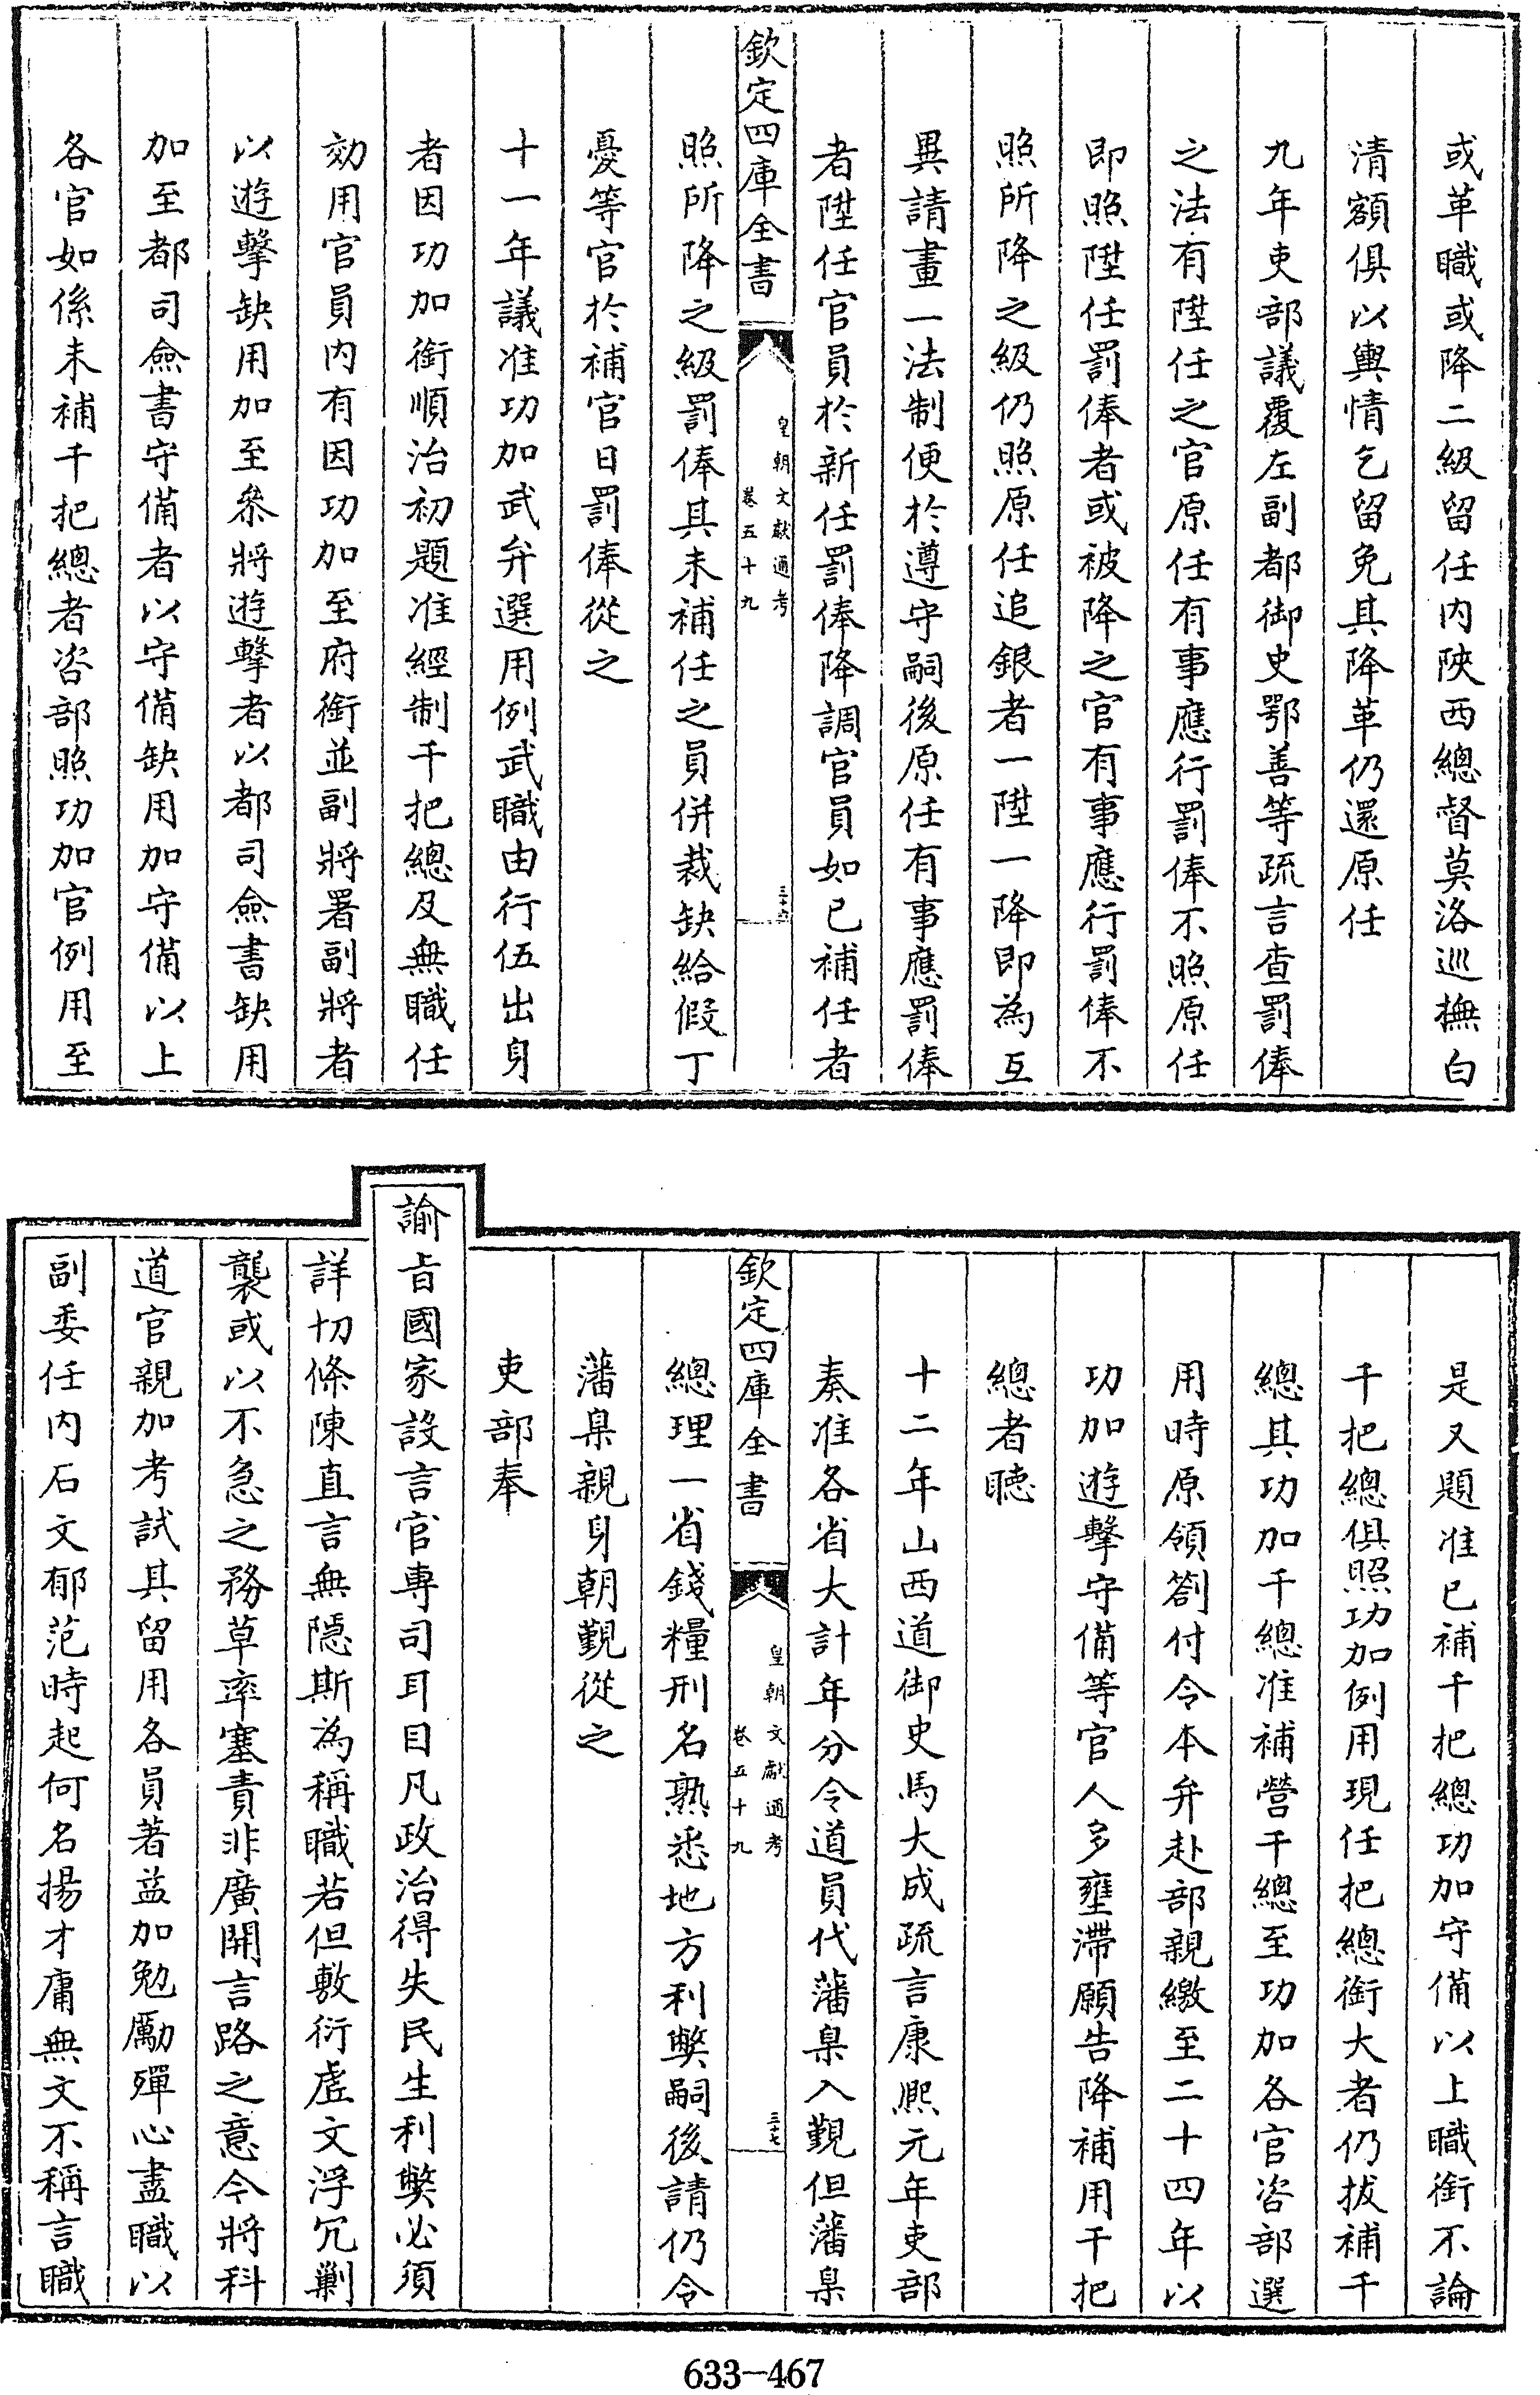 或革職或降二級留任内陜西總督莫洛巡撫白
清額俱以輿情乞留免其降革仍還原任
九年吏部議覆左副都御史鄂善等疏言查罰俸
之法有陞任之官原任有事應行罰俸不照原任
即照陞任罰俸者或被降之官有事應行罰俸不
照所降之級仍照原任追銀者一陞一降即為互
異請畫一法制便於遵守嗣後原任有事應罰俸
者陞任官員於新任罰俸降調官員如已補任者
欽定四庫全書
皇朝文獻通考
卷五十九
三十六
照所降之級罰俸其未補任之員併裁缺給假丁
憂等官於補官日罰俸從之
十一年議准功加武弁選用例武職由行伍出身
者因功加銜順治初題准經制千把總及無職任
効用官員内有因功加至府銜並副將署副將者
以遊擊缺用加至叅將遊擊者以都司僉書缺用
加至都司僉書守備者以守備缺用加守備以上
各官如係未補千把總者咨部照功加官例用至
是又題准已補千把總功加守備以上職銜不論
千把總俱照功加例用現任把總銜大者仍拔補千
總其功加千總准補營千總至功加各官咨部選
用時原領劄付令本弁赴部親繳至二十四年以
功加遊擊守備等官人多壅滯願告降補用千把
總者聽
十二年山西道御史馬大成疏言康熙元年吏部
奏准各省大計年分令道員代藩臬入覲但藩臬
欽定四庫全書
皇朝文獻通考
卷五十九
三十七
總理一省錢糧刑名熟悉地方利弊嗣後請仍令
藩臬親身朝覲從之
吏部奉
諭旨國家設言官專司耳目凡政治得失民生利弊必須
詳切條陳直言無隱斯為稱職若但敷衍虛文浮冗剿
襲或以不急之務草率塞責非廣開言路之意今將科
道官親加考試其留用各員著益加勉勵殫心盡職以
副委任内石文郁范時起何名揚才庸無文不稱言職
633-467